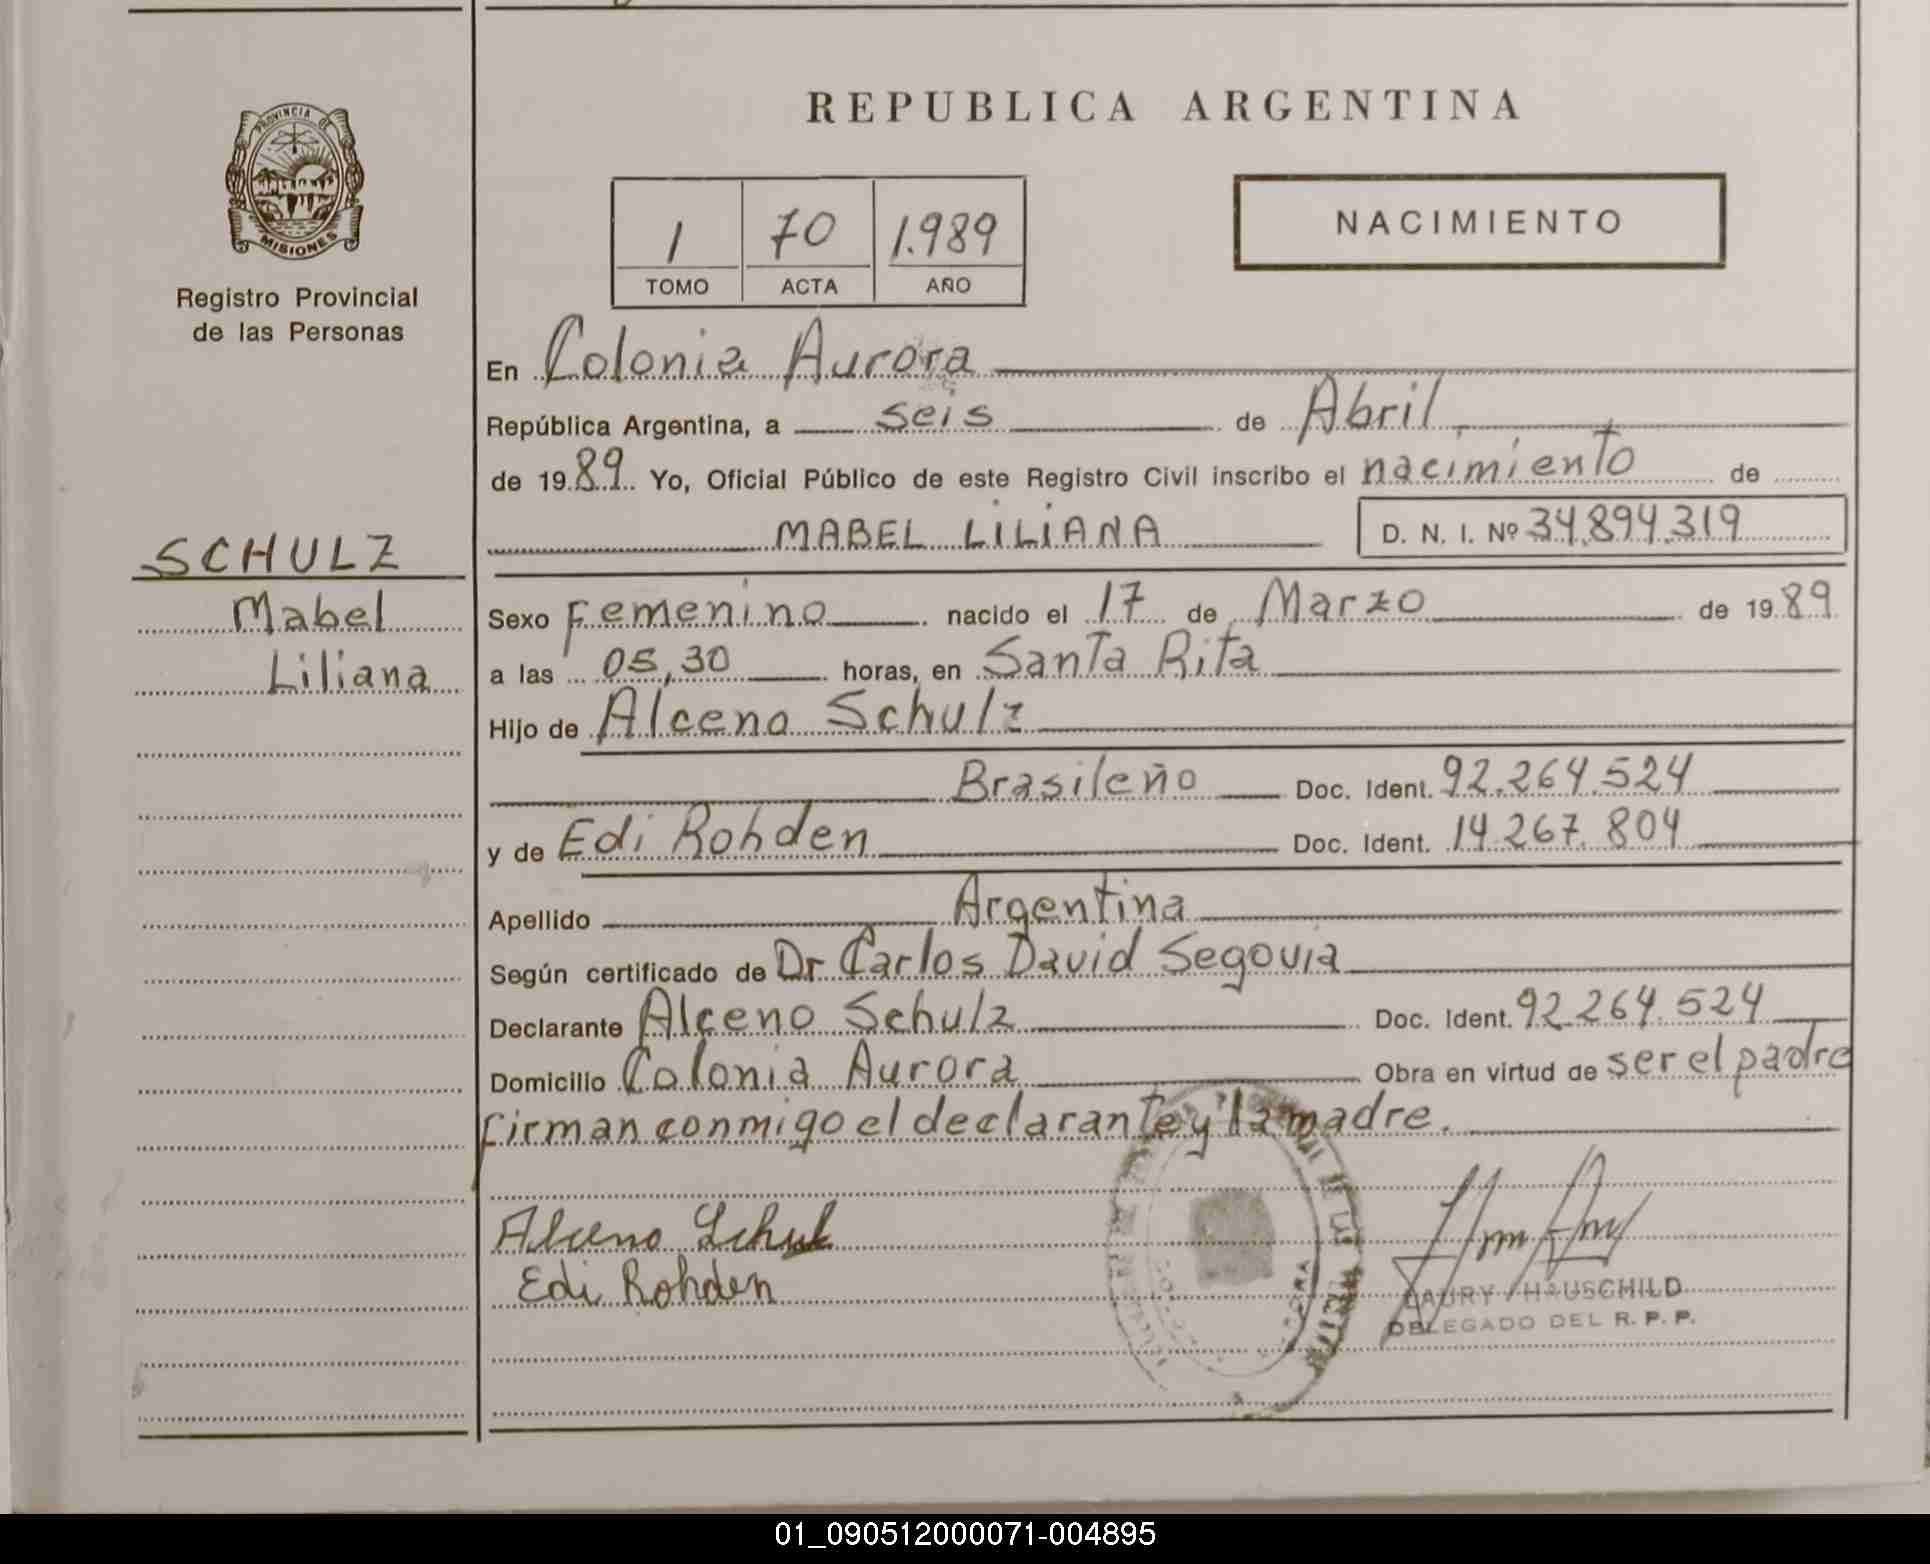 PROVINCIA DE
MISIONES
Registro Provincial
de las Personas
SCHULZ
Mabel
Liliana
REPUBLICA ARGENTINA
1 70 1.989
TOMO ACTA AÑO
NACIMIENTO
En Colonia Aurora
República Argentina, a seis de Abril
de 1989 Yo, Oficial Público de este Registro Civil inscribo el nacimiento de
MABEL LILIANA D. N. I. Nº 34.894.319
Sexo Femenino nacido el 17 de Marzo de 1989
a las 05,30 horas, en Santa Rita
Hijo de Alceno Schulz
Brasileño Doc. Ident. 92.264.524
y de Edi Rohden Doc. Ident. 14.267.804
Apellido Argentina
Según certificado de Dr Carlos David Segovia
Declarante Alceno Schulz Doc. Ident. 92.264.524
Domicilio Colonia Aurora Obra en virtud de ser el padre
firman conmigo el declarante y la madre.
Alceno Schulz
Edi Rohden
LAURY HAUSCHILD
DELEGADO DEL R. P. P.
01_090512000071-004895